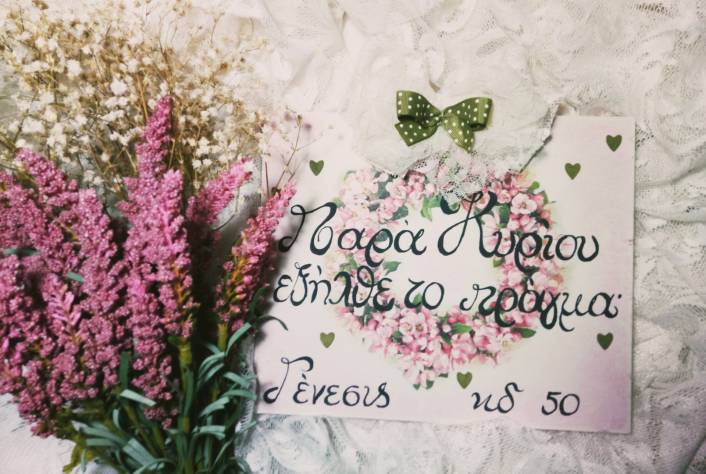 Παρὰ Κυρίου
εξήλθε το πράγμα·
Γένεσις κδ 50